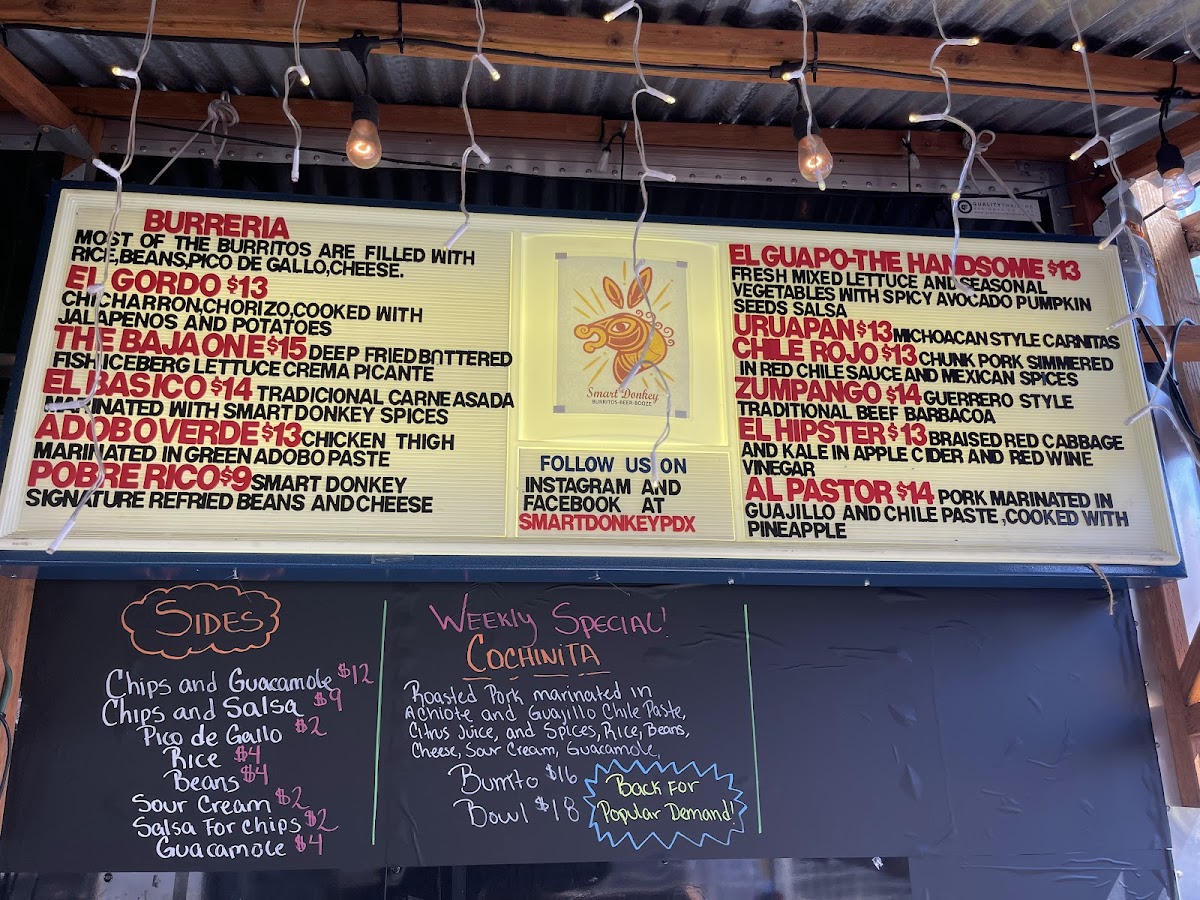 BURRERIA
MOST OF THE BURRITOS ARE FILLED WITH
RICE,BEANS,PICO DE GALLO,CHEESE.
EL GORDO $13
CHICHARRON,CHORIZO,COOKED WITH
JALAPENOS AND POTATOES
THE BAJA ONE $15 DEEP FRIED BATTERED
FISH ICEBERG LETTUCE CREMA PICANTE
EL BASICO $14 TRADICIONAL CARNE ASADA
MARINATED WITH SMART DONKEY SPICES
ADOBO VERDE $13 CHICKEN THIGH
MARINATED IN GREEN ADOBO PASTE
POBRE RICO $9 SMART DONKEY
SIGNATURE REFRIED BEANS AND CHEESE
Smart Donkey
BURRITOS-BEER-BOOZE
FOLLOW US ON
INSTAGRAM AND
FACEBOOK AT
SMARTDONKEYPDX
EL GUAPO-THE HANDSOME $13
FRESH MIXED LETTUCE AND SEASONAL
VEGETABLES WITH SPICY AVOCADO PUMPKIN
SEEDS SALSA
URUAPAN $13 MICHOACAN STYLE CARNITAS
CHILE ROJO $13 CHUNK PORK SIMMERED
IN RED CHILE SAUCE AND MEXICAN SPICES
ZUMPANGO $14 GUERRERO STYLE
TRADITIONAL BEEF BARBACOA
EL HIPSTER $13 BRAISED RED CABBAGE
AND KALE IN APPLE CIDER AND RED WINE
VINEGAR
AL PASTOR $14 PORK MARINATED IN
GUAJILLO AND CHILE PASTE ,COOKED WITH
PINEAPPLE
SIDES
Chips and Guacamole $12
Chips and Salsa $9
Pico de Gallo $2
Rice $4
Beans $4
Sour Cream $2
Salsa For Chips $2
Guacamole $4
WEEKLY SPECIAL!
COCHINITA
Roasted Pork marinated in
Achiote and Guajillo Chile Paste,
Citrus Juice, and Spices, Rice, Beans,
Cheese, Sour Cream, Guacamole,
Burrito $16
Bowl $18
Back For
Popular Demand!